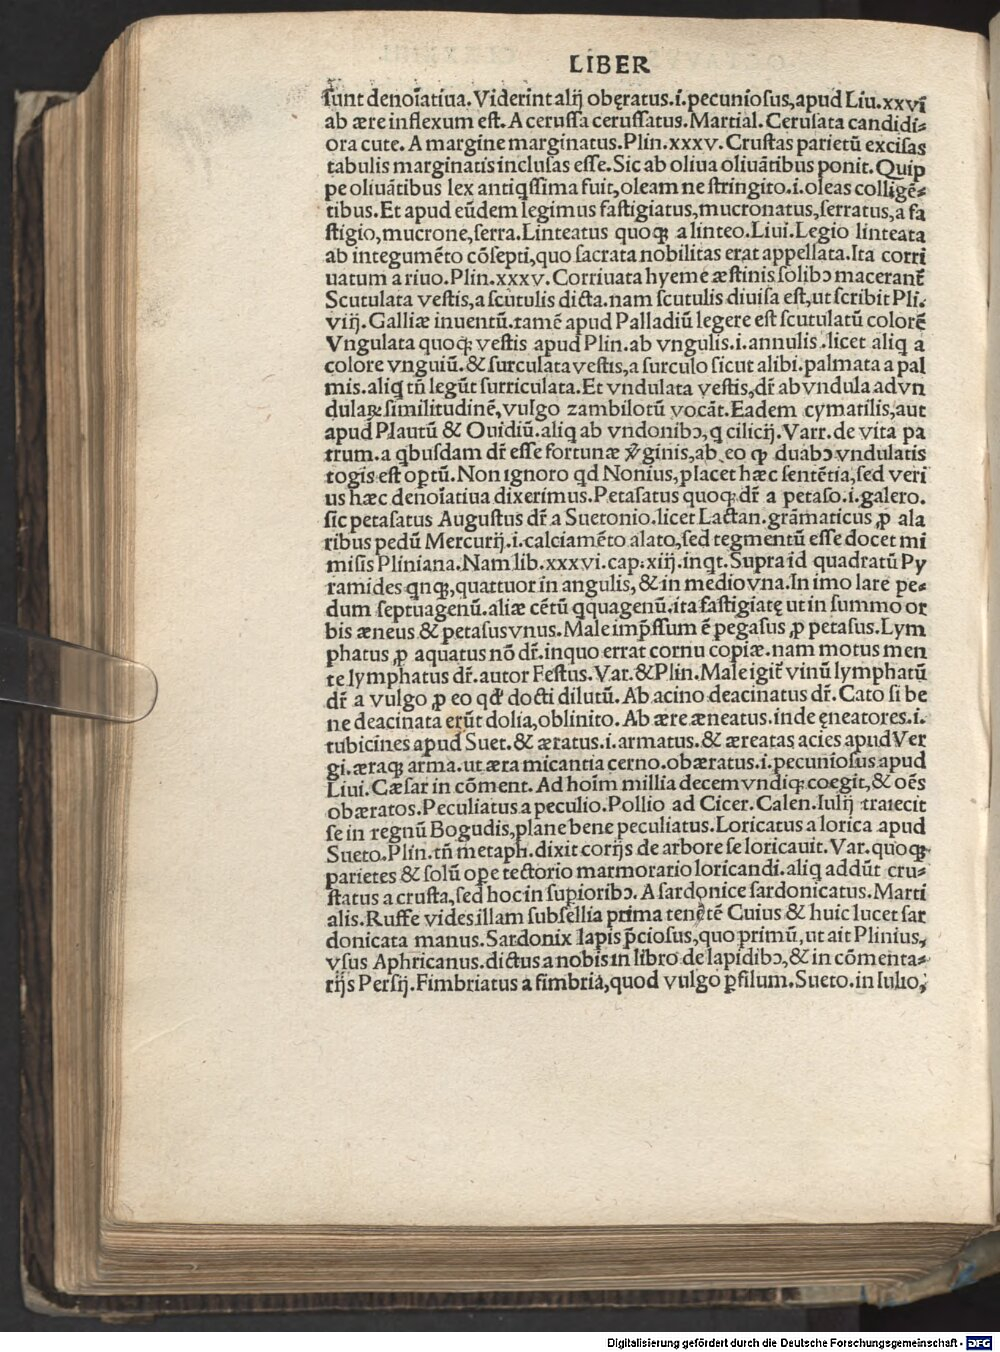 LIBER
sunt denoīatiua. Viderint alij obęratus.i.pecuniosus,apud Liu.xxvi
ab ære inflexum est. A cerussa cerussatus. Martial. Cerusata candidi⸗
ora cute. A margine marginatus. Plin.xxxv. Crustas parietū excisas
tabulis marginatis inclusas esse. Sic ab oliua oliuātibus ponit. Quip
pe oliuātibus lex antiqssima fuit, oleam ne stringito.i.oleas colligē⸗
tibus. Et apud eūdem legimus fastigiatus,mucronatus,serratus,a fa
stigio,mucrone,serra. Linteatus quoqꝫ a linteo. Liui. Legio linteata
ab integumēto cōsepti,quo sacrata nobilitas erat appellata. Ita corri
uatum a riuo. Plin.xxxv. Corriuata hyeme æstinis solibꝰ macerant᷑
Scutulata vestis,a scutulis dicta.nam scutulis diuisa est,ut scribit Pli.
viij. Galliæ inuentū.tamē apud Palladiū legere est scutulatū colorē
Vngulata quoqꝫ vestis apud Plin.ab vngulis.i.annulis.licet aliq a
colore vnguiū.& surculata vestis,a surculo sicut alibi.palmata a pal
mis.aliq tñ legūt surriculata. Et vndulata vestis,dr̄ ab vndula ad vn
dulaꝝ similitudinē,vulgo zambilotū vocāt. Eadem cymatilis,aut
apud Plautū & Ouidiū.aliq ab vndonibꝰ,q cilicij. Varr. de vita pa
trum.a qbusdam dr̄ esse fortunæ v̓ginis,ab eo ꝙ duabꝰ vndulatis
togis est optū. Non ignoro qd Nonius,placet hæc sentētia,sed veri
us hæc denoīatiua dixerimus. Petasatus quoqꝫ dr̄ a petaso.i.galero.
sic petasatus Augustus dr̄ a Suetonio.licet Lactan.grāmaticus ꝓ ala
ribus pedū Mercurij.i.calciamēto alato,sed tegmentū esse docet mi
misis Pliniana. Nam lib.xxxvi.cap.xiij.inqt. Supra id quadratū Py
ramides qnqꝫ,quattuor in angulis,& in medio vna. In imo late pe⸗
dum septuagenū.aliæ cētū qquagenū.ita fastigiatę ut in summo or
bis æneus & petasus vnus. Male imp̄ssum ē pegasus ꝓ petasus. Lym
phatus ꝓ aquatus nō dr̄.in quo errat cornu copiæ.nam motus men
te lymphatus dr̄.autor Festus. Var.& Plin. Male igit᷑ vinū lymphatū
dr̄ a vulgo ꝓ eo qđ docti dilutū. Ab acino deacinatus dr̄. Cato si be
ne deacinata erūt dolia,oblinito. Ab ære æneatus.inde ęneatores.i.
tubicines apud Suet.& æratus.i.armatus.& æreatas acies apud Ver
gi.æraqꝫ arma.ut æra micantia cerno.obæratus.i.pecuniosus apud
Liui. Cæsar in cōment. Ad hoīm millia decem vndiqꝫ coegit,& oēs
obæratos. Peculiatus a peculio. Pollio ad Cicer. Calen. Iulij traiecit
se in regnū Bogudis,plane bene peculiatus. Loricatus a lorica apud
Sueto. Plin.tñ metaph.dixit corijs de arbore se loricauit. Var.quoqꝫ
parietes & solū ope tectorio marmorario loricandi.aliq addūt cru⸗
status a crusta,sed hoc in supioribꝰ. A sardonice sardonicatus. Marti
alis. Ruffe vides illam subsellia prima Cuius & huic lucet sar
donicata manus. Sardonix lapis p̄ciosus,quo primū,ut ait Plinius,
vsus Aphricanus.dictus a nobis in libro de lapidibꝰ,& in cōmenta⸗
rijs Persij. Fimbriatus a fimbria,quod vulgo pfilum. Sueto.in Iulio,
Digitalisierung gefördert durch die Deutsche Forschungsgemeinschaft - DFG